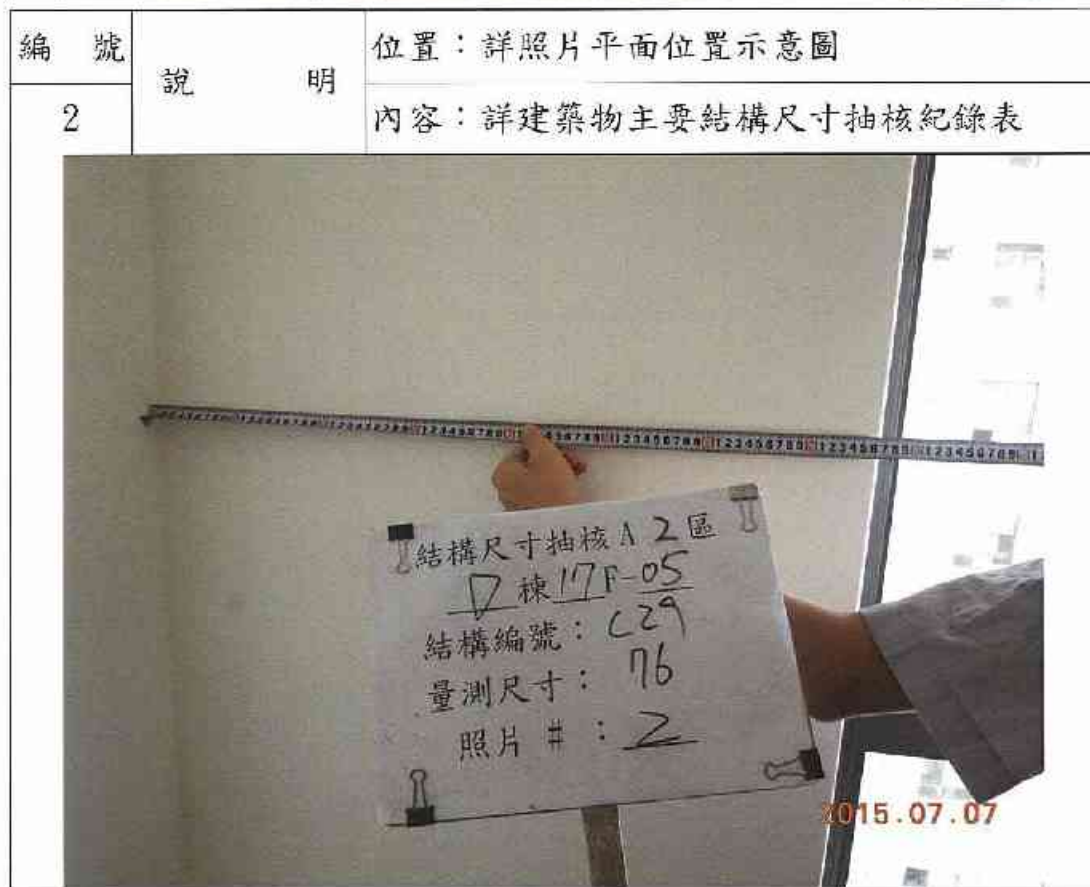 編號
說明
位置：詳照片平面位置示意圖
2
內容：詳建築物主要結構尺寸抽核紀錄表
結構尺寸抽核A 2區
D棟17F-05
結構編號：C29
量測尺寸：76
照片#：2
2015.07.07